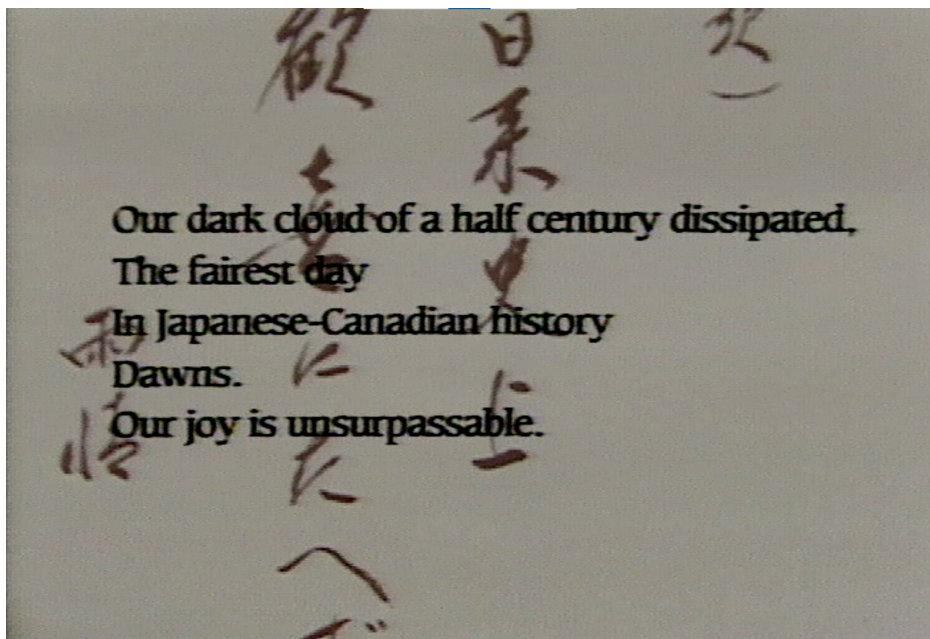 Our dark cloud of a half century dissipated,
The fairest day
In Japanese-Canadian history
Dawns.
Our joy is unsurpassable.
日系史上
歓喜にたへ